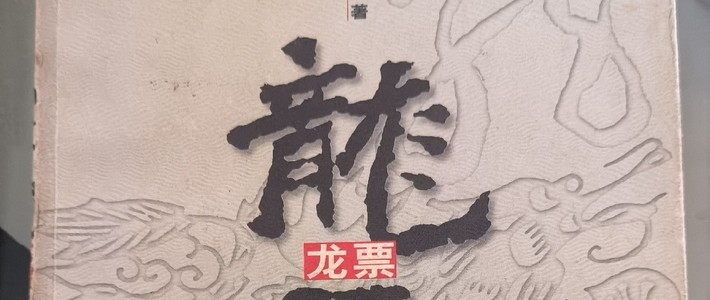 著
龍
龙票